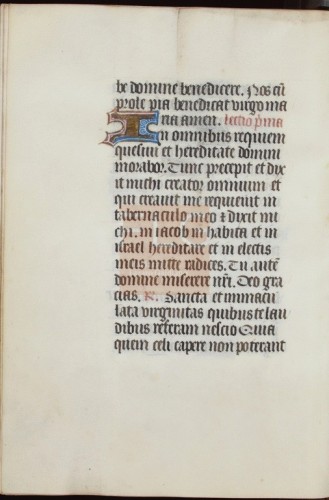 be domine benedicere. Nos cū
prole pia benedicat virgo ma
ria amen. Lectio p̄ma
In omnibus requiem
quesivi et hereditate domini
morabor. Tunc precepit et dix
it michi creator omnium et
qui creavit me requievit in
tabernaculo meo ⁊ dixit mi
chi. in iacob in habita et in
israel hereditare et in electis
meis mitte radices. Tu autē
domine miserere nr̄i. Deo gra
cias. R. Sancta et immacu
lata virginitas quibus te lau
dibus referam nescio Quia
quem celi capere non poterant